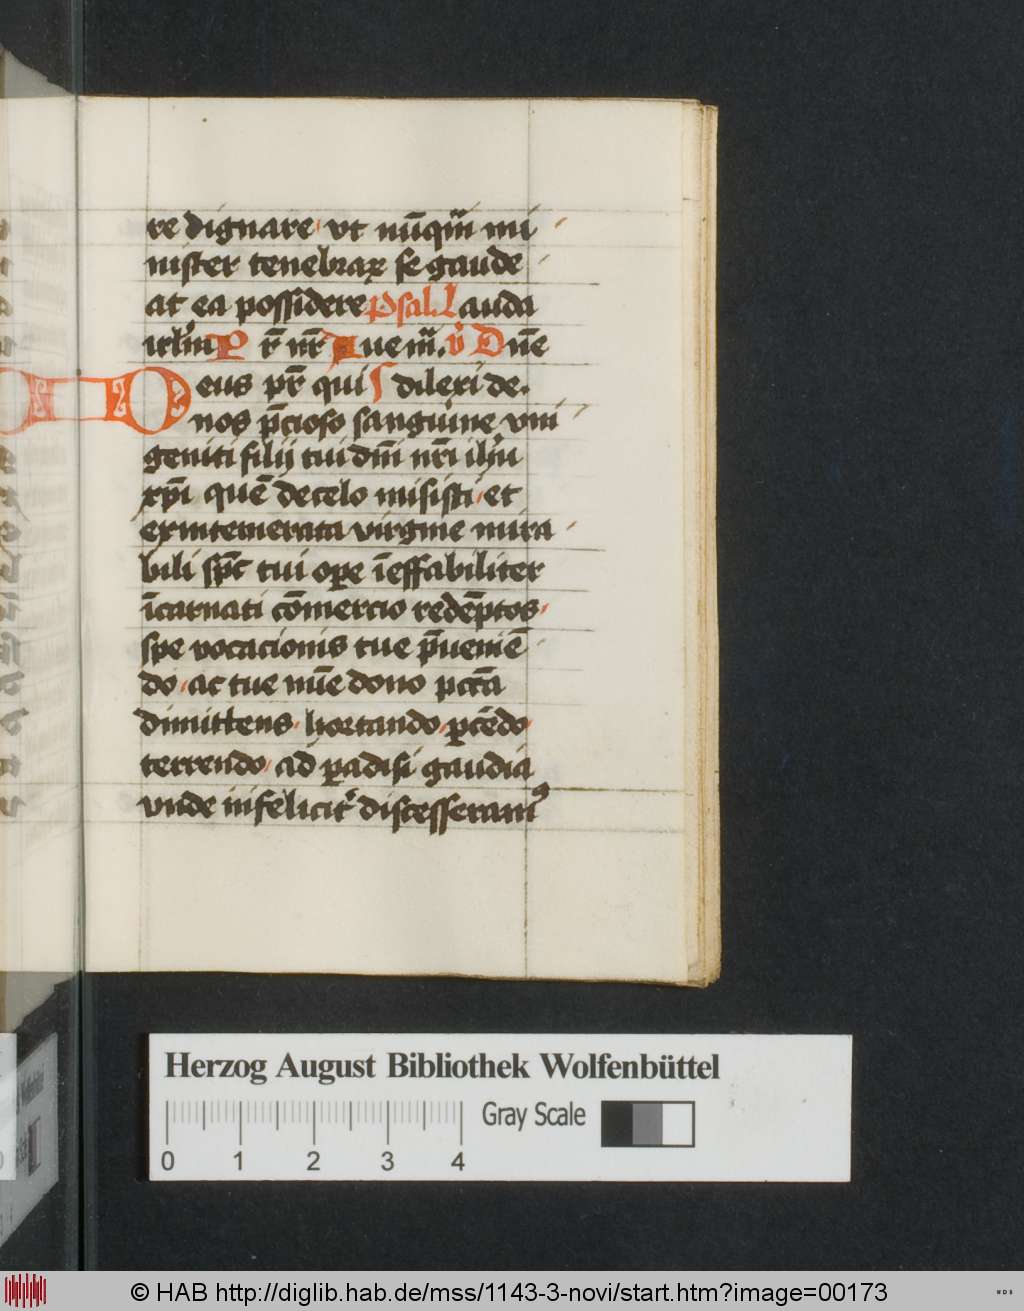 re dignare vt nūqm̄ mi
nister tenebraꝝ se gaude
at ea possidere Psal. Lauda
irl̄m P r̄ nr̄ Aue m̄. v̉ Dn̄e
Deus pr̄ qui dilexi de
nos p̄cioso sanguine vni
geniti filij tui dn̄i nr̄i ih̄u
xp̄i quē de celo misisti et
ex intemerata virgine mira
bili sp̄c tui ope īeffabiliter
īcarnati cōmercio redēptos
spe vocacionis tue p̄ueniē
do ac tue mīe dono pctā
dimittens hortando ꝑcēdo
terrendo ad ꝑadisi gaudia
vnde infelicit̉ discesseramꝰ
Herzog August Bibliothek Wolfenbüttel
0 1 2 3 4 Gray Scale
© HAB http://diglib.hab.de/mss/1143-3-novi/start.htm?image=00173